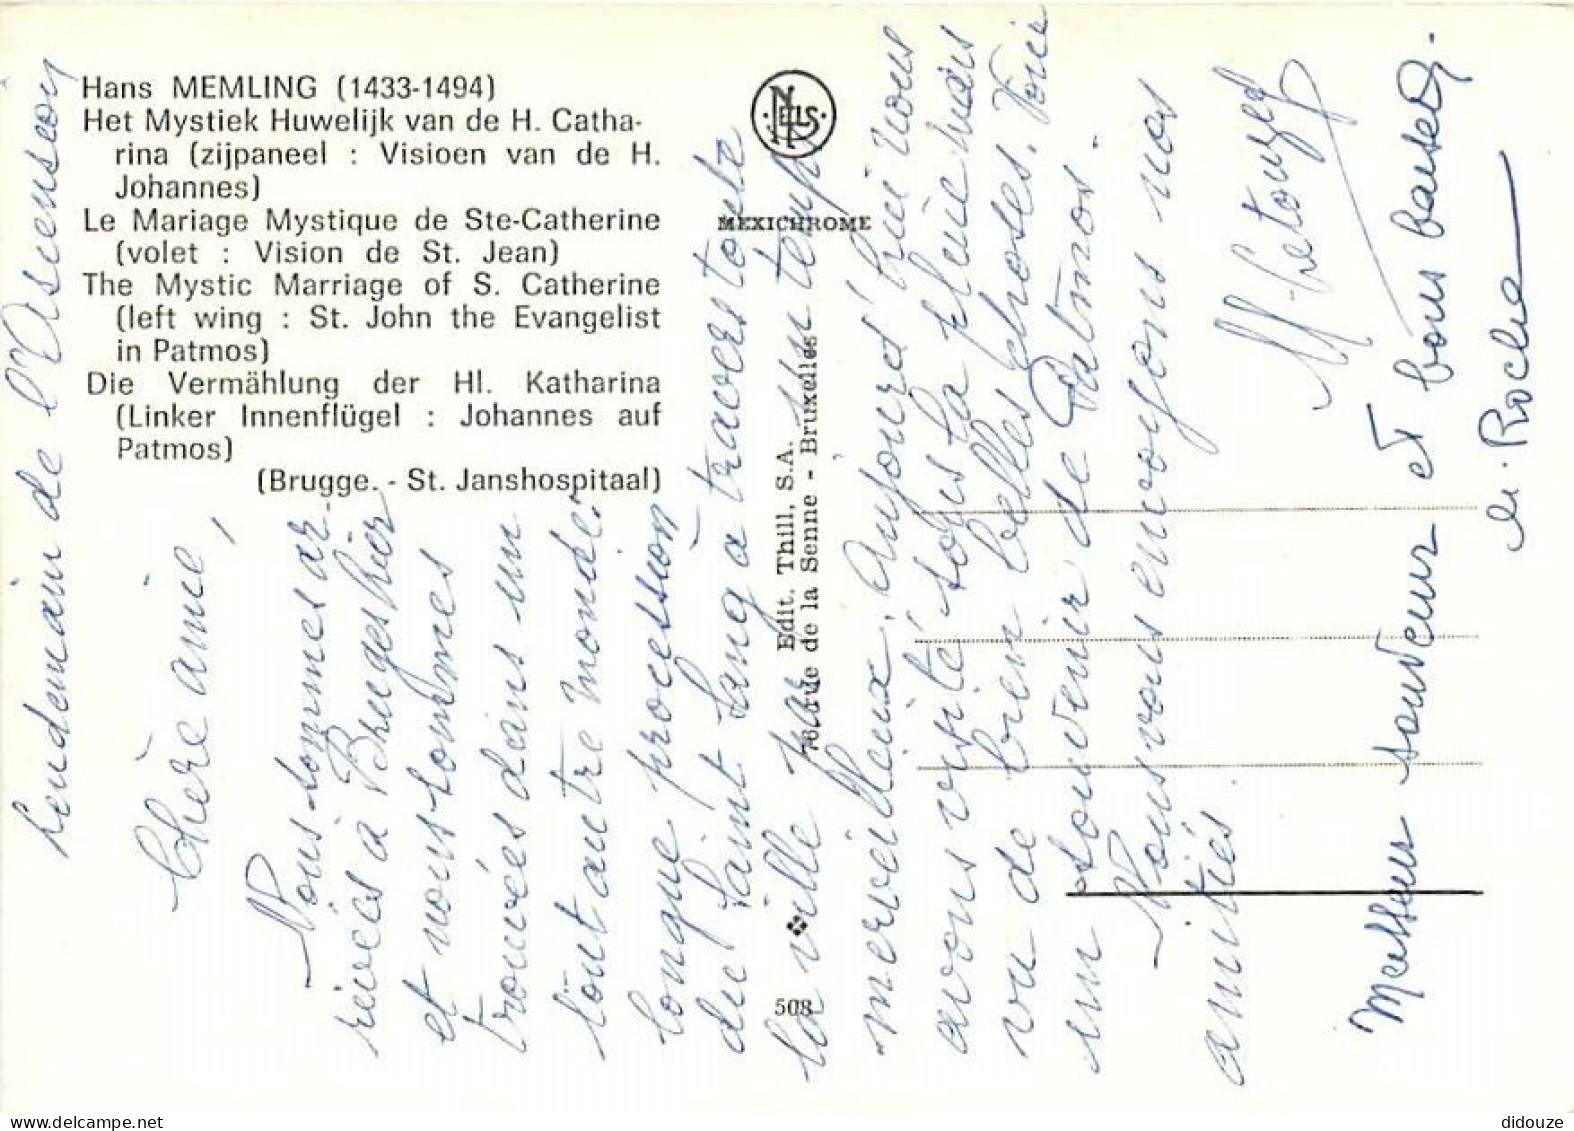 Hans MEMLING (1433-1494)
Het Mystiek Huwelijk van de H. Catha-
rina (zijpaneel : Visioen van de H.
Johannes)
Le Mariage Mystique de Ste-Catherine
(volet : Vision de St. Jean)
The Mystic Marriage of S. Catherine
(left wing : St. John the Evangelist
in Patmos)
Die Vermählung der Hl. Katharina
(Linker Innenflügel : Johannes auf
Patmos)
(Brugge. - St. Janshospitaal)
NELS
MEXICHROME
Edit. Thill, S.A.
76, rue de la Senne - Bruxelles
508
Lendemain de l'Ascension
Chère amie,
Nous sommes ar-
rivés à Bruges hier
et nous sommes
trouvés dans un
tout autre monde.
longue procession
du Saint Sang à travers toute
la ville par un temps
merveilleux. Aujourd'hui nous
avons visité, sous la pluie mais
vu de bien belles choses. Voici
un souvenir de Patmos.
Nous vous envoyons nos
amitiés.
M. Letouzey
Meilleur souvenir et bons baisers.
Roche
didouze